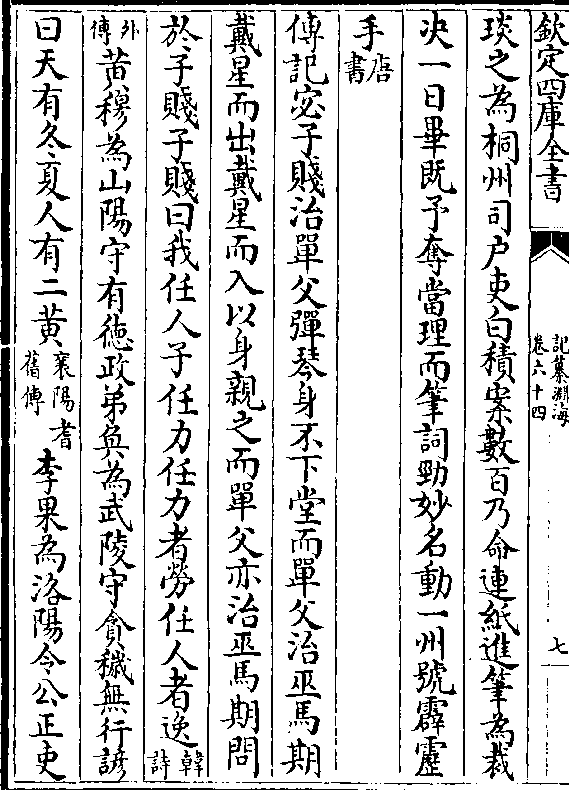 欽定四庫全書
記纂淵海
卷六十四
七
琰之為桐州司户吏白積案數百乃命連紙進筆為裁
决一日畢既予奪當理而筆詞勁妙名動一州號霹靂
手唐書
傳記宓子賤治單父彈琴身不下堂而單父治巫馬期
戴星而出戴星而入以身親之而單父亦治巫馬期問
於子賤子賤曰我任人子任力任力者勞任人者逸韓詩
外傳黄穆為山陽守有德政弟奐為武陵守貪穢無行諺
曰天有冬夏人有二黄襄陽耆舊傳李果為洛陽令公正吏